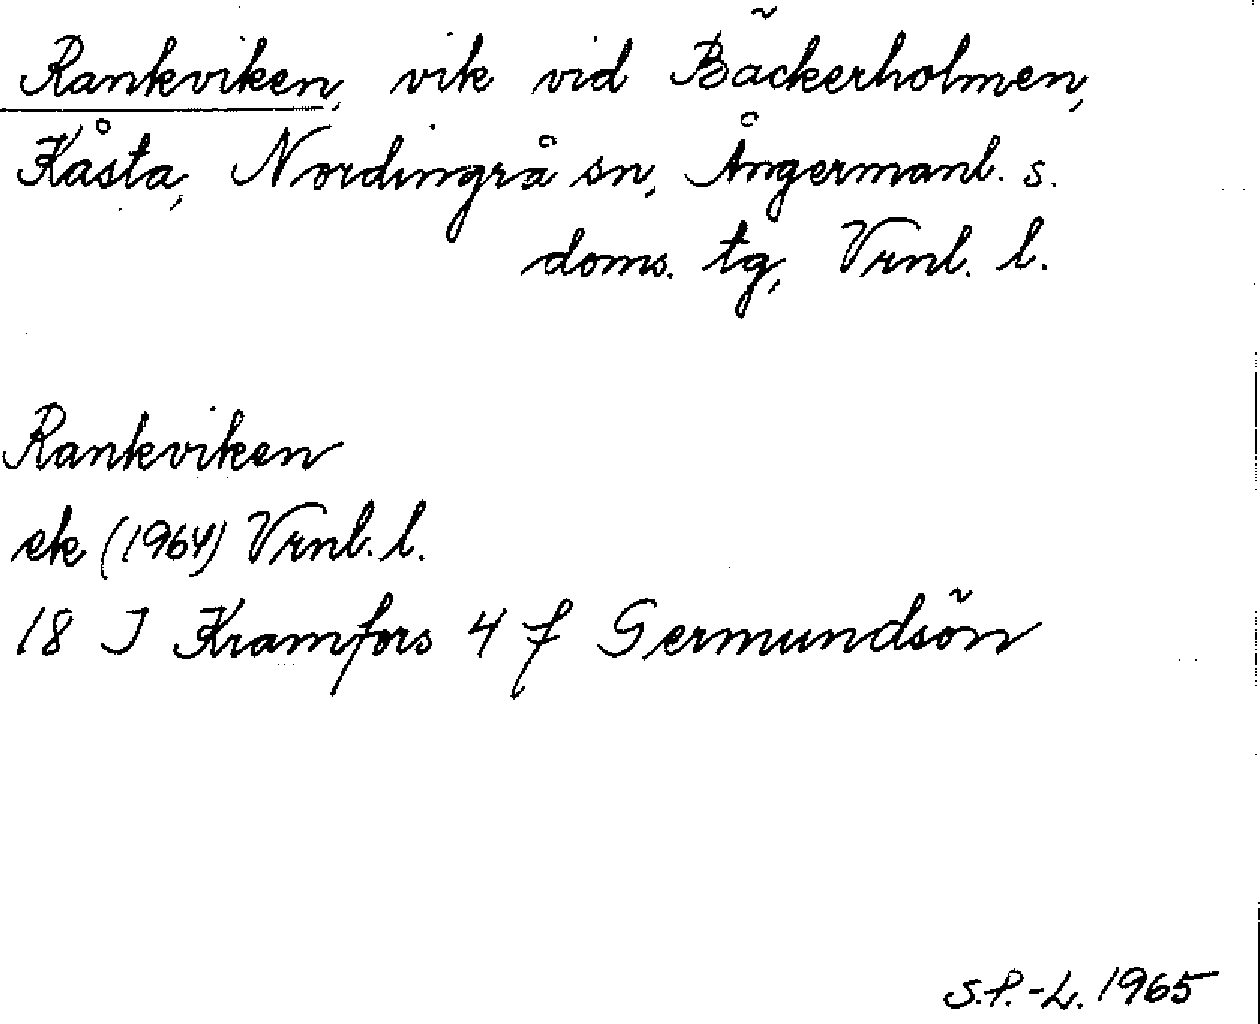 Rankviken, vik vid Bäckerholmen,
Kåsta, Nordingrå sn, Ångermanl. s.
doms. tg, Vrnl. l.
Rankviken
ek (1964) Vrnl. l.
18 I Kramfors 4 f Germundsön
S.P.-L. 1965